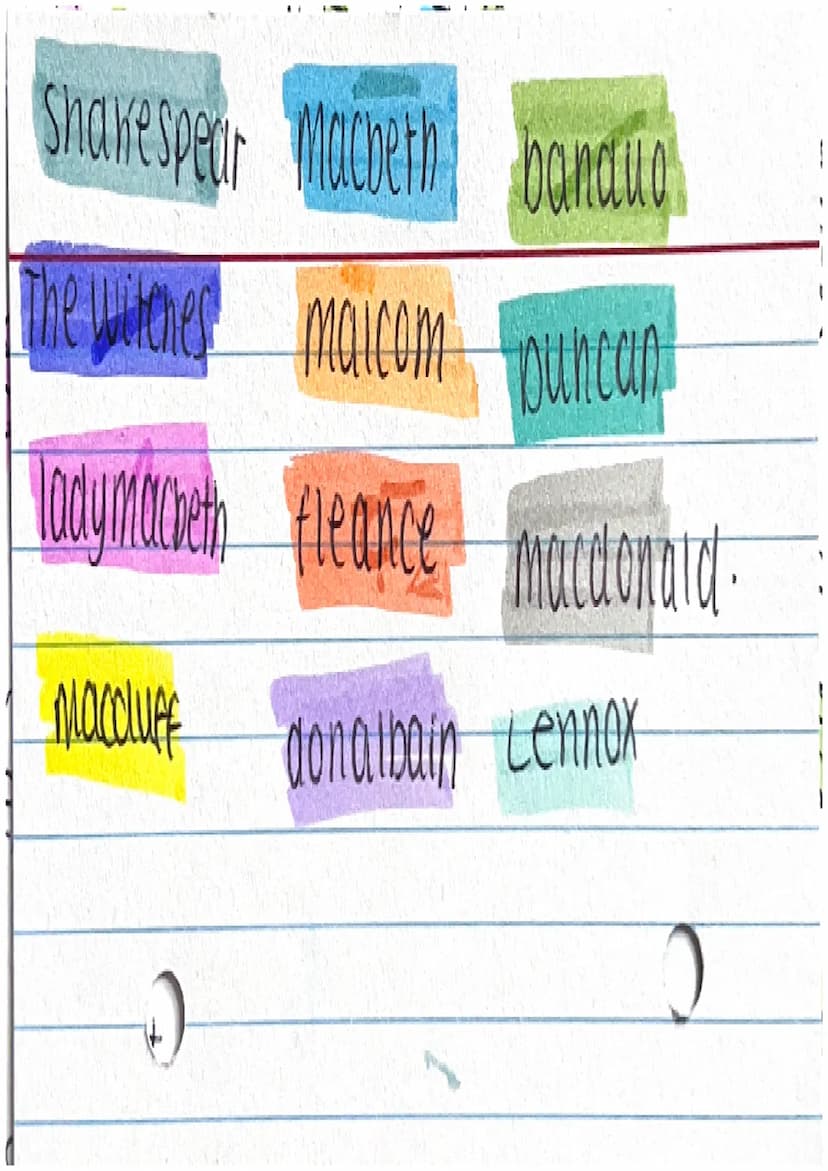 Shakespear macbeth banquo
The witches malcom Duncan
lady macbeth fleance macdonald.
Macduff donalbain Lennox